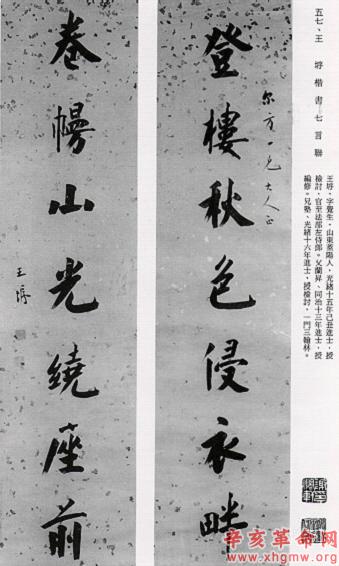 五七、王垿楷書七言聯
王垿，字覺生，山東萊陽人，光緒十五年己丑進士，授
檢討，官至法部左侍郎。父蘭昇、同治十三年進士，授
編修。兄塾、光緒十六年進士，授檢討，一門三翰林。
尔方一兄大人正
登樓秋色侵衣畔
卷幔山光繞座前
王垿
辛亥革命网
www.xhgmw.org